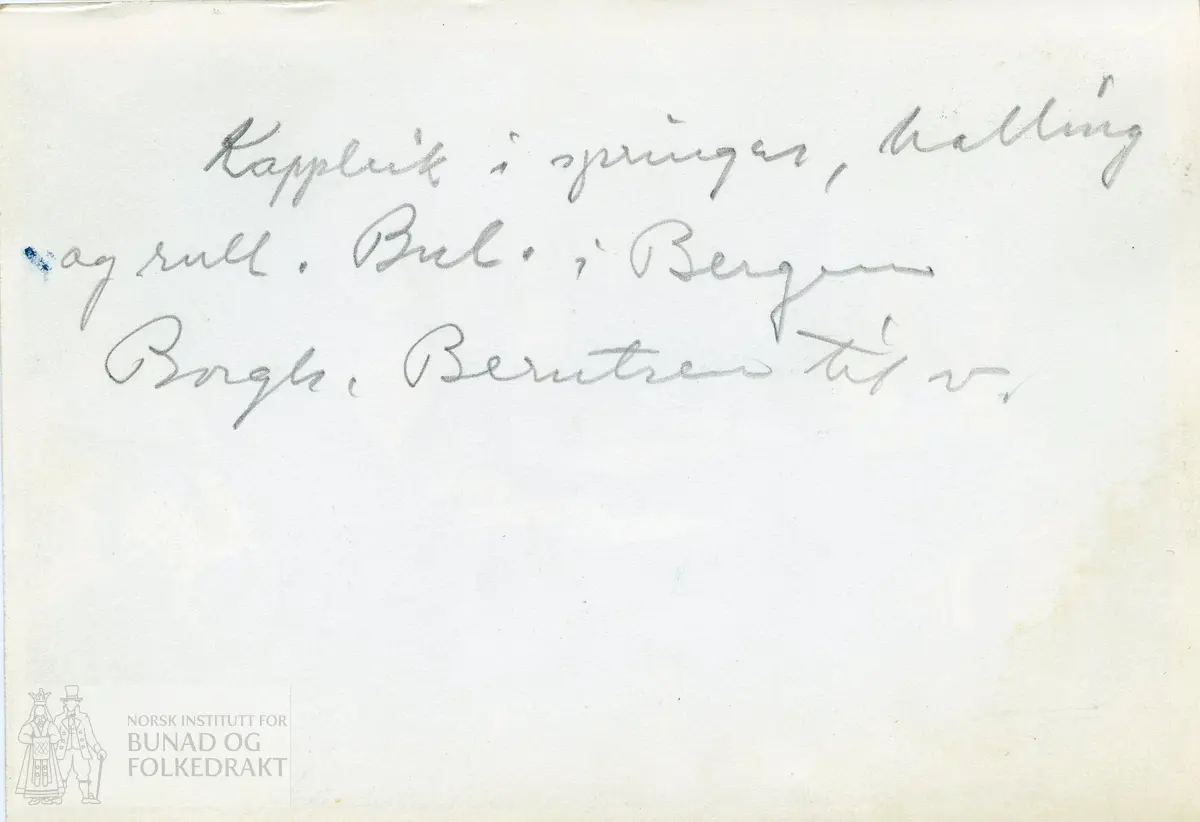 Kappleik i springar, halling
og rull. Bul. i Bergen
Borgh. Berntsen til v.
NORSK INSTITUTT FOR
BUNAD OG
FOLKEDRAKT